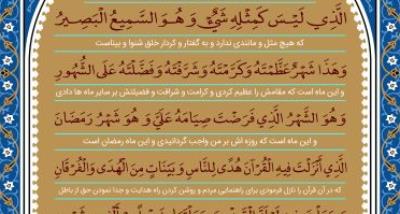 الَّذِي لَيْسَ كَمِثْلِهِ شَيْءٌ وَ هُوَ السَّمِيعُ الْبَصِيرُ
که هیچ مثل و مانندی ندارد و به گفتار و کردار خلق شنوا و بیناست
وَ هٰذَا شَهْرٌ عَظَّمْتَهُ وَ كَرَّمْتَهُ وَ شَرَّفْتَهُ وَ فَضَّلْتَهُ عَلَى الشُّهُورِ
و این ماه است که مقامش را عظیم کردی و کرامت و شرافت و فضیلتش بر سایر ماه ها دادی
وَ هُوَ الشَّهْرُ الَّذِي فَرَضْتَ صِيَامَهُ عَلَيَّ وَ هُوَ شَهْرُ رَمَضَانَ
و این ماه است که روزه اش بر من واجب گردانیدی و این ماه رمضان است
الَّذِي أَنْزَلْتَ فِيهِ الْقُرْآنَ هُدًى لِلنَّاسِ وَ بَيِّنَاتٍ مِنَ الْهُدَى وَ الْفُرْقَانِ
که در آن قرآن را نازل فرمودی برای راهنمایی مردم و روشن کردن راه هدایت و جدا نمودن حق از باطل